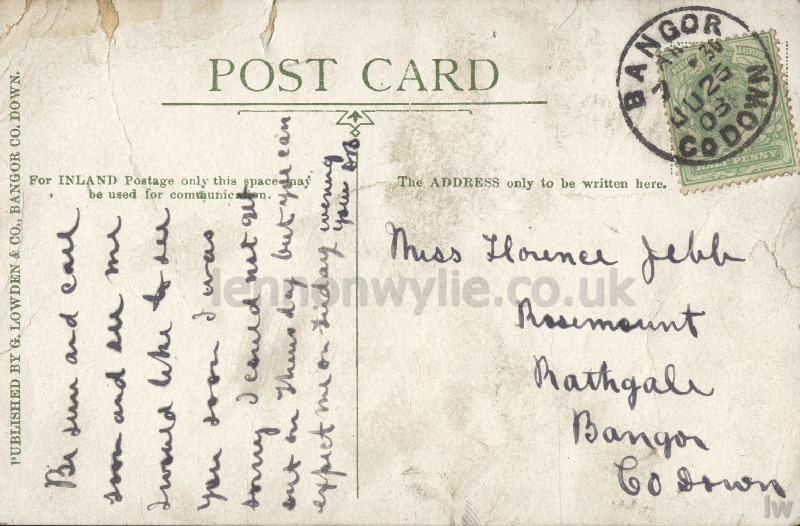 POST CARD
For INLAND Postage only this space may
be used for communication.
The ADDRESS only to be written here.
PUBLISHED BY G. LOWDEN & CO., BANGOR CO. DOWN.
BANGOR
JU 25
03
CO DOWN
HALF PENNY
Be sure and call
soon and see me
I would like to see
you soon I was
sorry I could not get
out on Thursday but you can
expect me on Friday evening
Yours
Miss Florence Jebb
Rosemount
Rathgale
Bangor
Co Down
lennonwylie.co.uk
lw